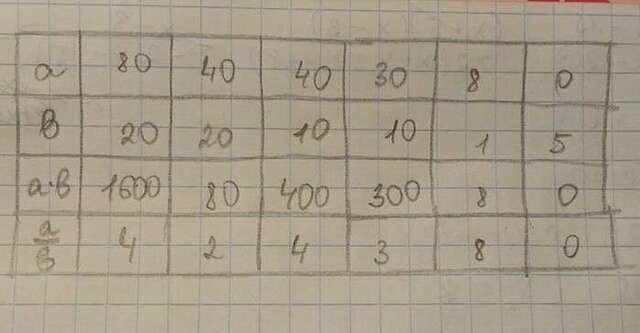 a 80 40 40 30 8 0
в 20 20 10 10 1 5
a·в 1600 80 400 300 8 0
a/в 4 2 4 3 8 0